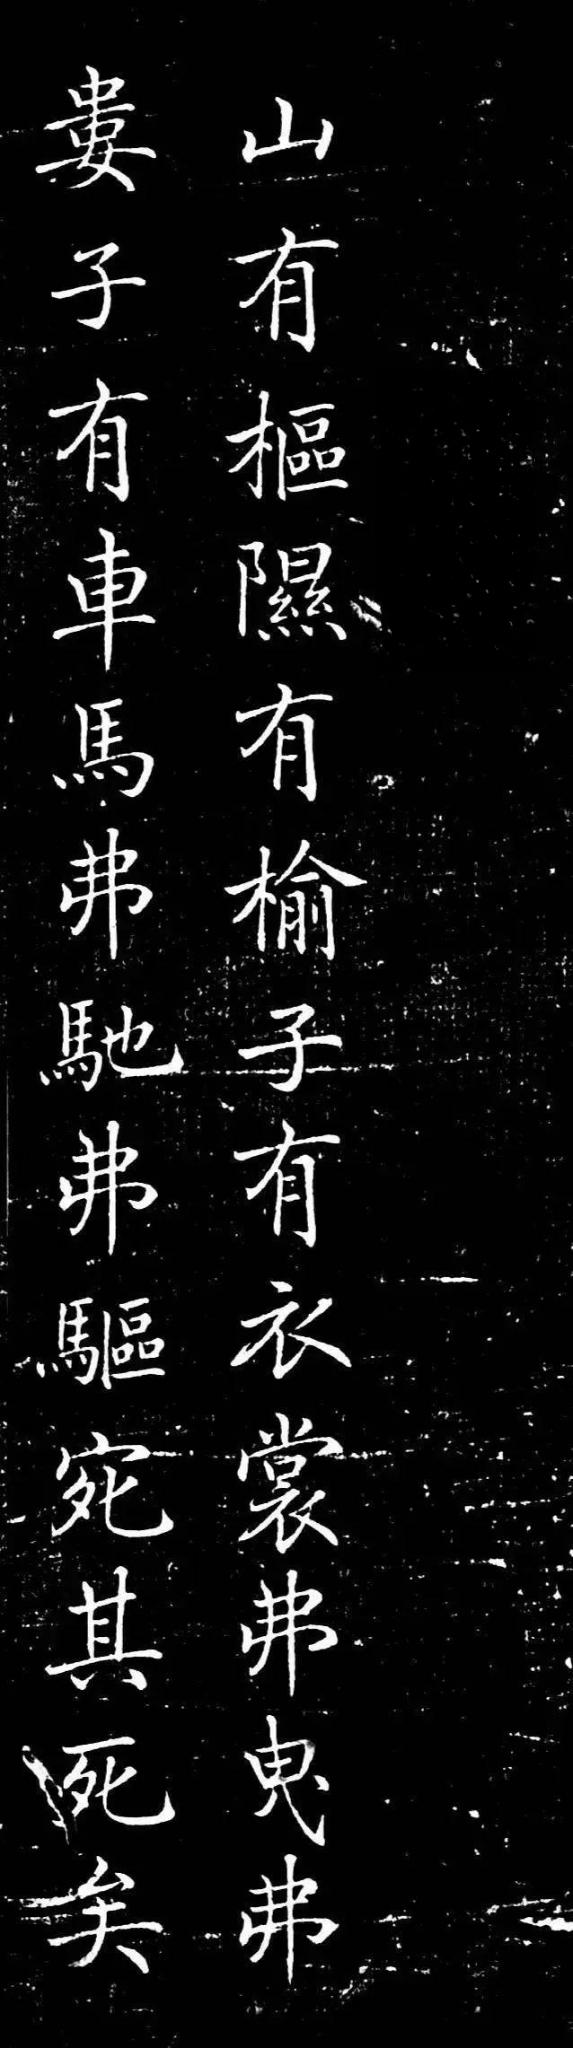 山有樞隰有榆子有衣裳弗曳弗
婁子有車馬弗馳弗驅宛其死矣